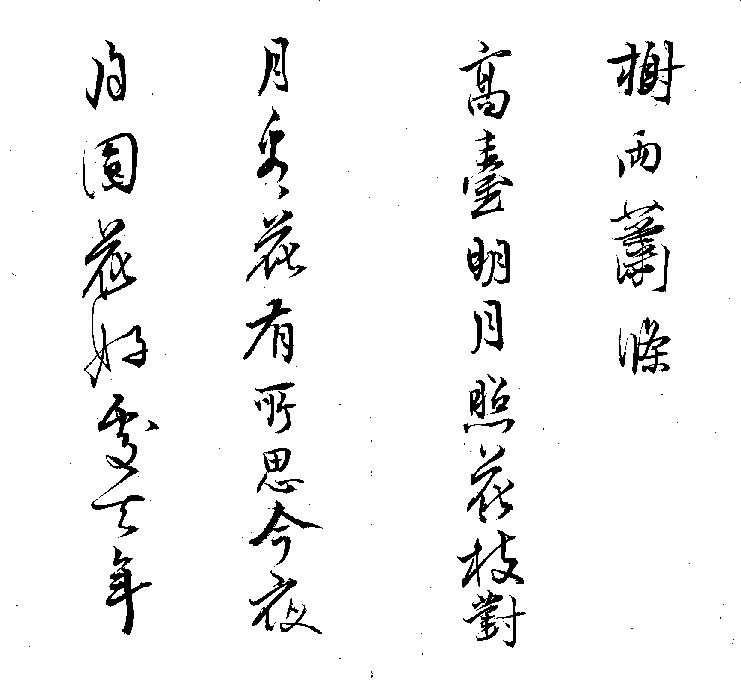 樹兩蕭條
高臺明月照花枝對
月看花有所思今夜
月圓花好處去年